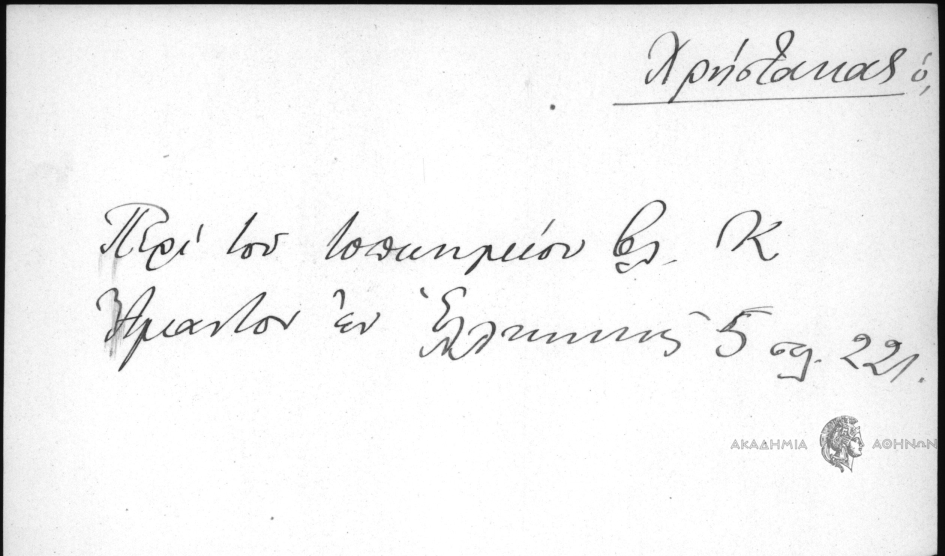 Χρήστακας ὁ,
Περὶ τοῦ τοπωνυμίου βλ. Κ
Ἄμαντον ἐν Ἑλληνικοῖς 5 σελ. 221.
ΑΚΑΔΗΜΙΑ ΑΘΗΝΩΝ